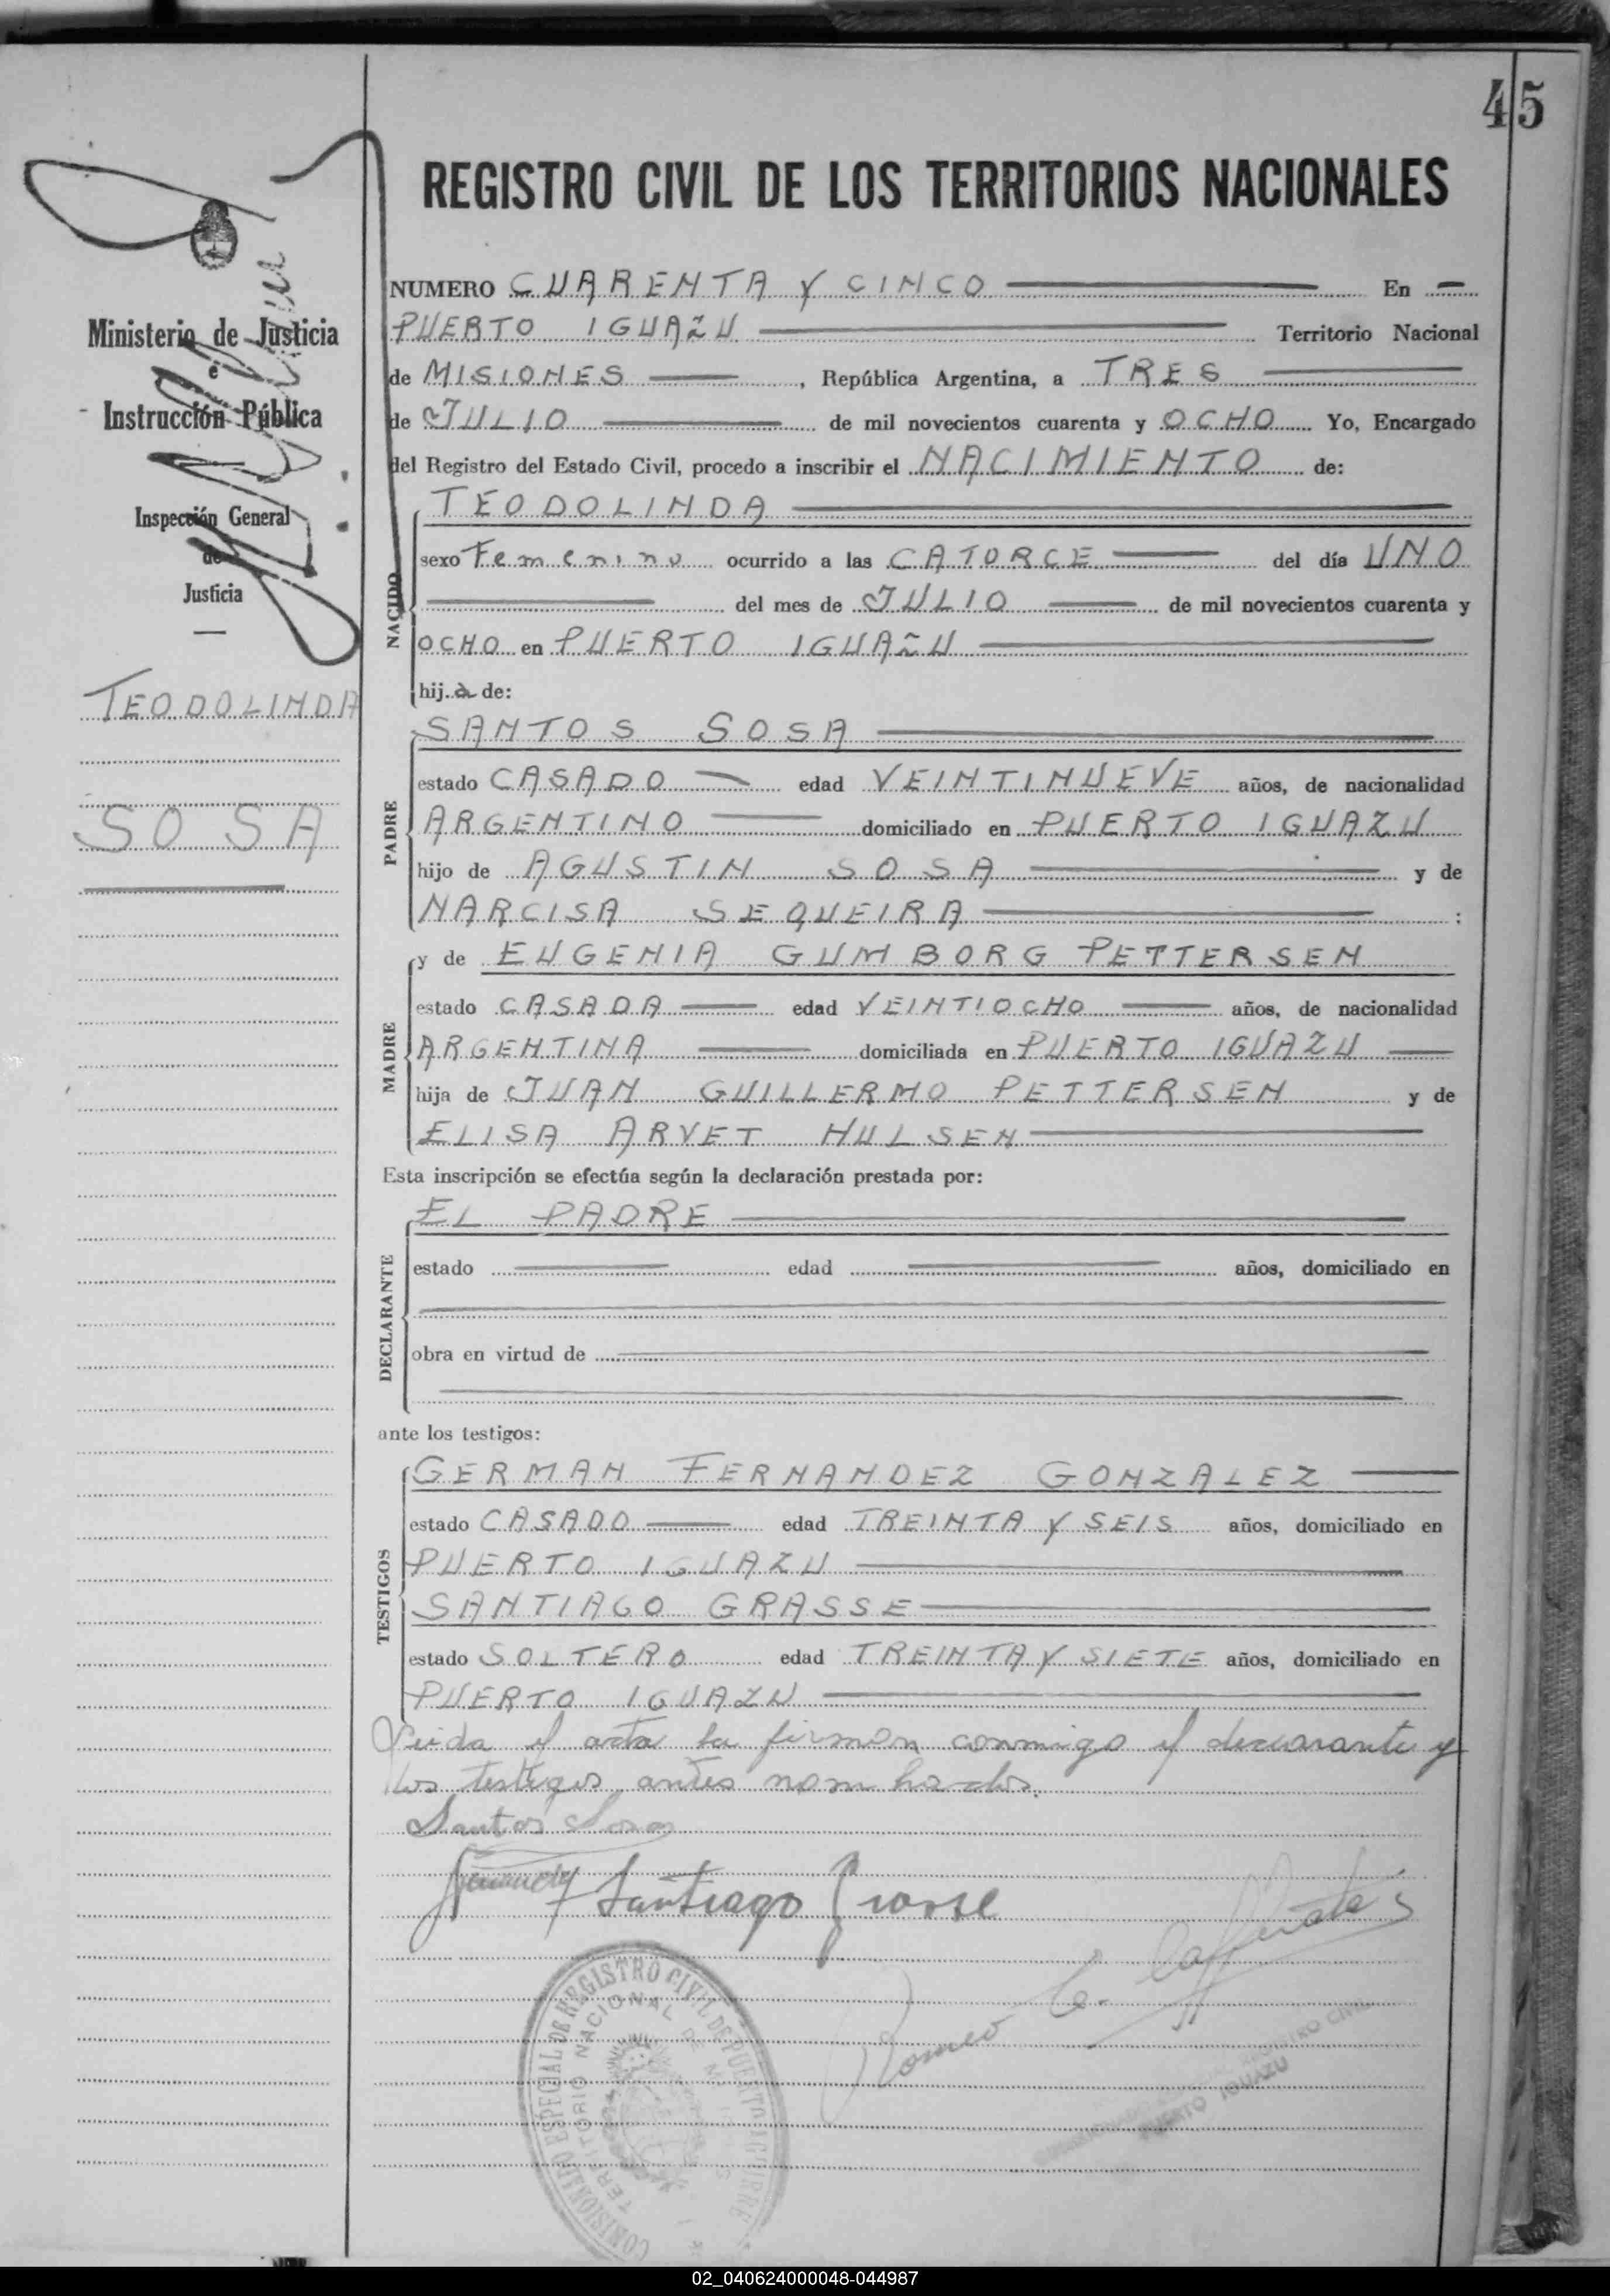 45
REGISTRO CIVIL DE LOS TERRITORIOS NACIONALES
Ministerio de Justicia
e
Instrucción Pública
Inspección General
de
Justicia
TEODOLINDA
SOSA
NUMERO CUARENTA Y CINCO En
PUERTO IGUAZU Territorio Nacional
de MISIONES, República Argentina, a TRES
de JULIO de mil novecientos cuarenta y OCHO Yo, Encargado
del Registro del Estado Civil, procedo a inscribir el NACIMIENTO de:
NACIDO
TEODOLINDA
sexo Femenino ocurrido a las CATORCE del día UNO
del mes de JULIO de mil novecientos cuarenta y
OCHO en PUERTO IGUAZU
hij a de:
PADRE
SANTOS SOSA
estado CASADO edad VEINTINUEVE años, de nacionalidad
ARGENTINO domiciliado en PUERTO IGUAZU
hijo de AGUSTIN SOSA y de
NARCISA SEQUEIRA :
MADRE
y de EUGENIA GUMBORG PETTERSEN
estado CASADA edad VEINTIOCHO años, de nacionalidad
ARGENTINA domiciliada en PUERTO IGUAZU
hija de JUAN GUILLERMO PETTERSEN y de
ELISA ARVET HULSEN
Esta inscripción se efectúa según la declaración prestada por:
DECLARANTE
EL PADRE
estado edad años, domiciliado en
obra en virtud de
ante los testigos:
TESTIGOS
GERMAN FERNANDEZ GONZALEZ
estado CASADO edad TREINTA Y SEIS años, domiciliado en
PUERTO IGUAZU
SANTIAGO GRASSE
estado SOLTERO edad TREINTA Y SIETE años, domiciliado en
PUERTO IGUAZU
Leida el acta la firman conmigo el declarante y
los testigos antes nombrados.
Santos Sosa
Santiago Grasse
Romeo C.
COMISIONADO ESPECIAL DE REGISTRO CIVIL DE PUERTO AGUIRRE
TERRITORIO NACIONAL DE MISIONES
REGISTRO CIVIL
PUERTO IGUAZU
02_040624000048-044987